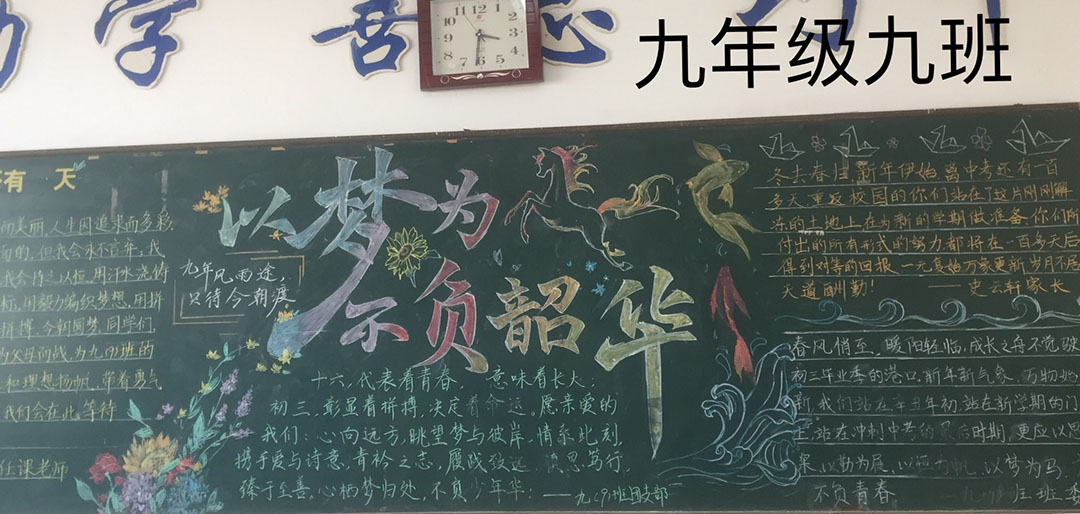 学
九年级九班
12
1
2
3
4
5
6
7
8
9
10
11
有一天
以梦为
不负韶华
九年风雨途，
只待今朝渡
而美丽，人生因追求而多彩，
面的，但我会永不言弃，我
我会持之以恒，用汗水浇铸
标，用毅力编织梦想，用拼
拼搏，今朝圆梦，同学们
为父母而战，为九(9)班的
和理想扬帆，带着勇气
我们会在此等待
任课老师
十六，代表着青春，意味着长大；
初三，彰显着拼搏，决定着命运，愿亲爱的
我们：心向远方，眺望梦与彼岸，情系此刻，
携手爱与诗意，青衿之志，履践致远，慎思笃行，
臻于至善，心栖梦归处，不负少年华！
——九(9)班团支部
冬去春归，新年伊始，离中考还有一百
多天，重返校园的你们站在了这片刚刚解
冻的土地上，在为新的学期做准备，你们所
付出的所有形式的努力都将在一百多天后
得到对等的回报，一元复始万象更新，岁月不居
天道酬勤！——史云轩家长
春风悄至，暖阳轻临，成长之舟不觉驶
初三毕业季的港口，新年新气象，万物
新，我们站在辛丑年初，站在新学期的门
站在冲刺中考的最后时期，更应以
以勤为展，以恒为帆，以梦为马，
不负青春